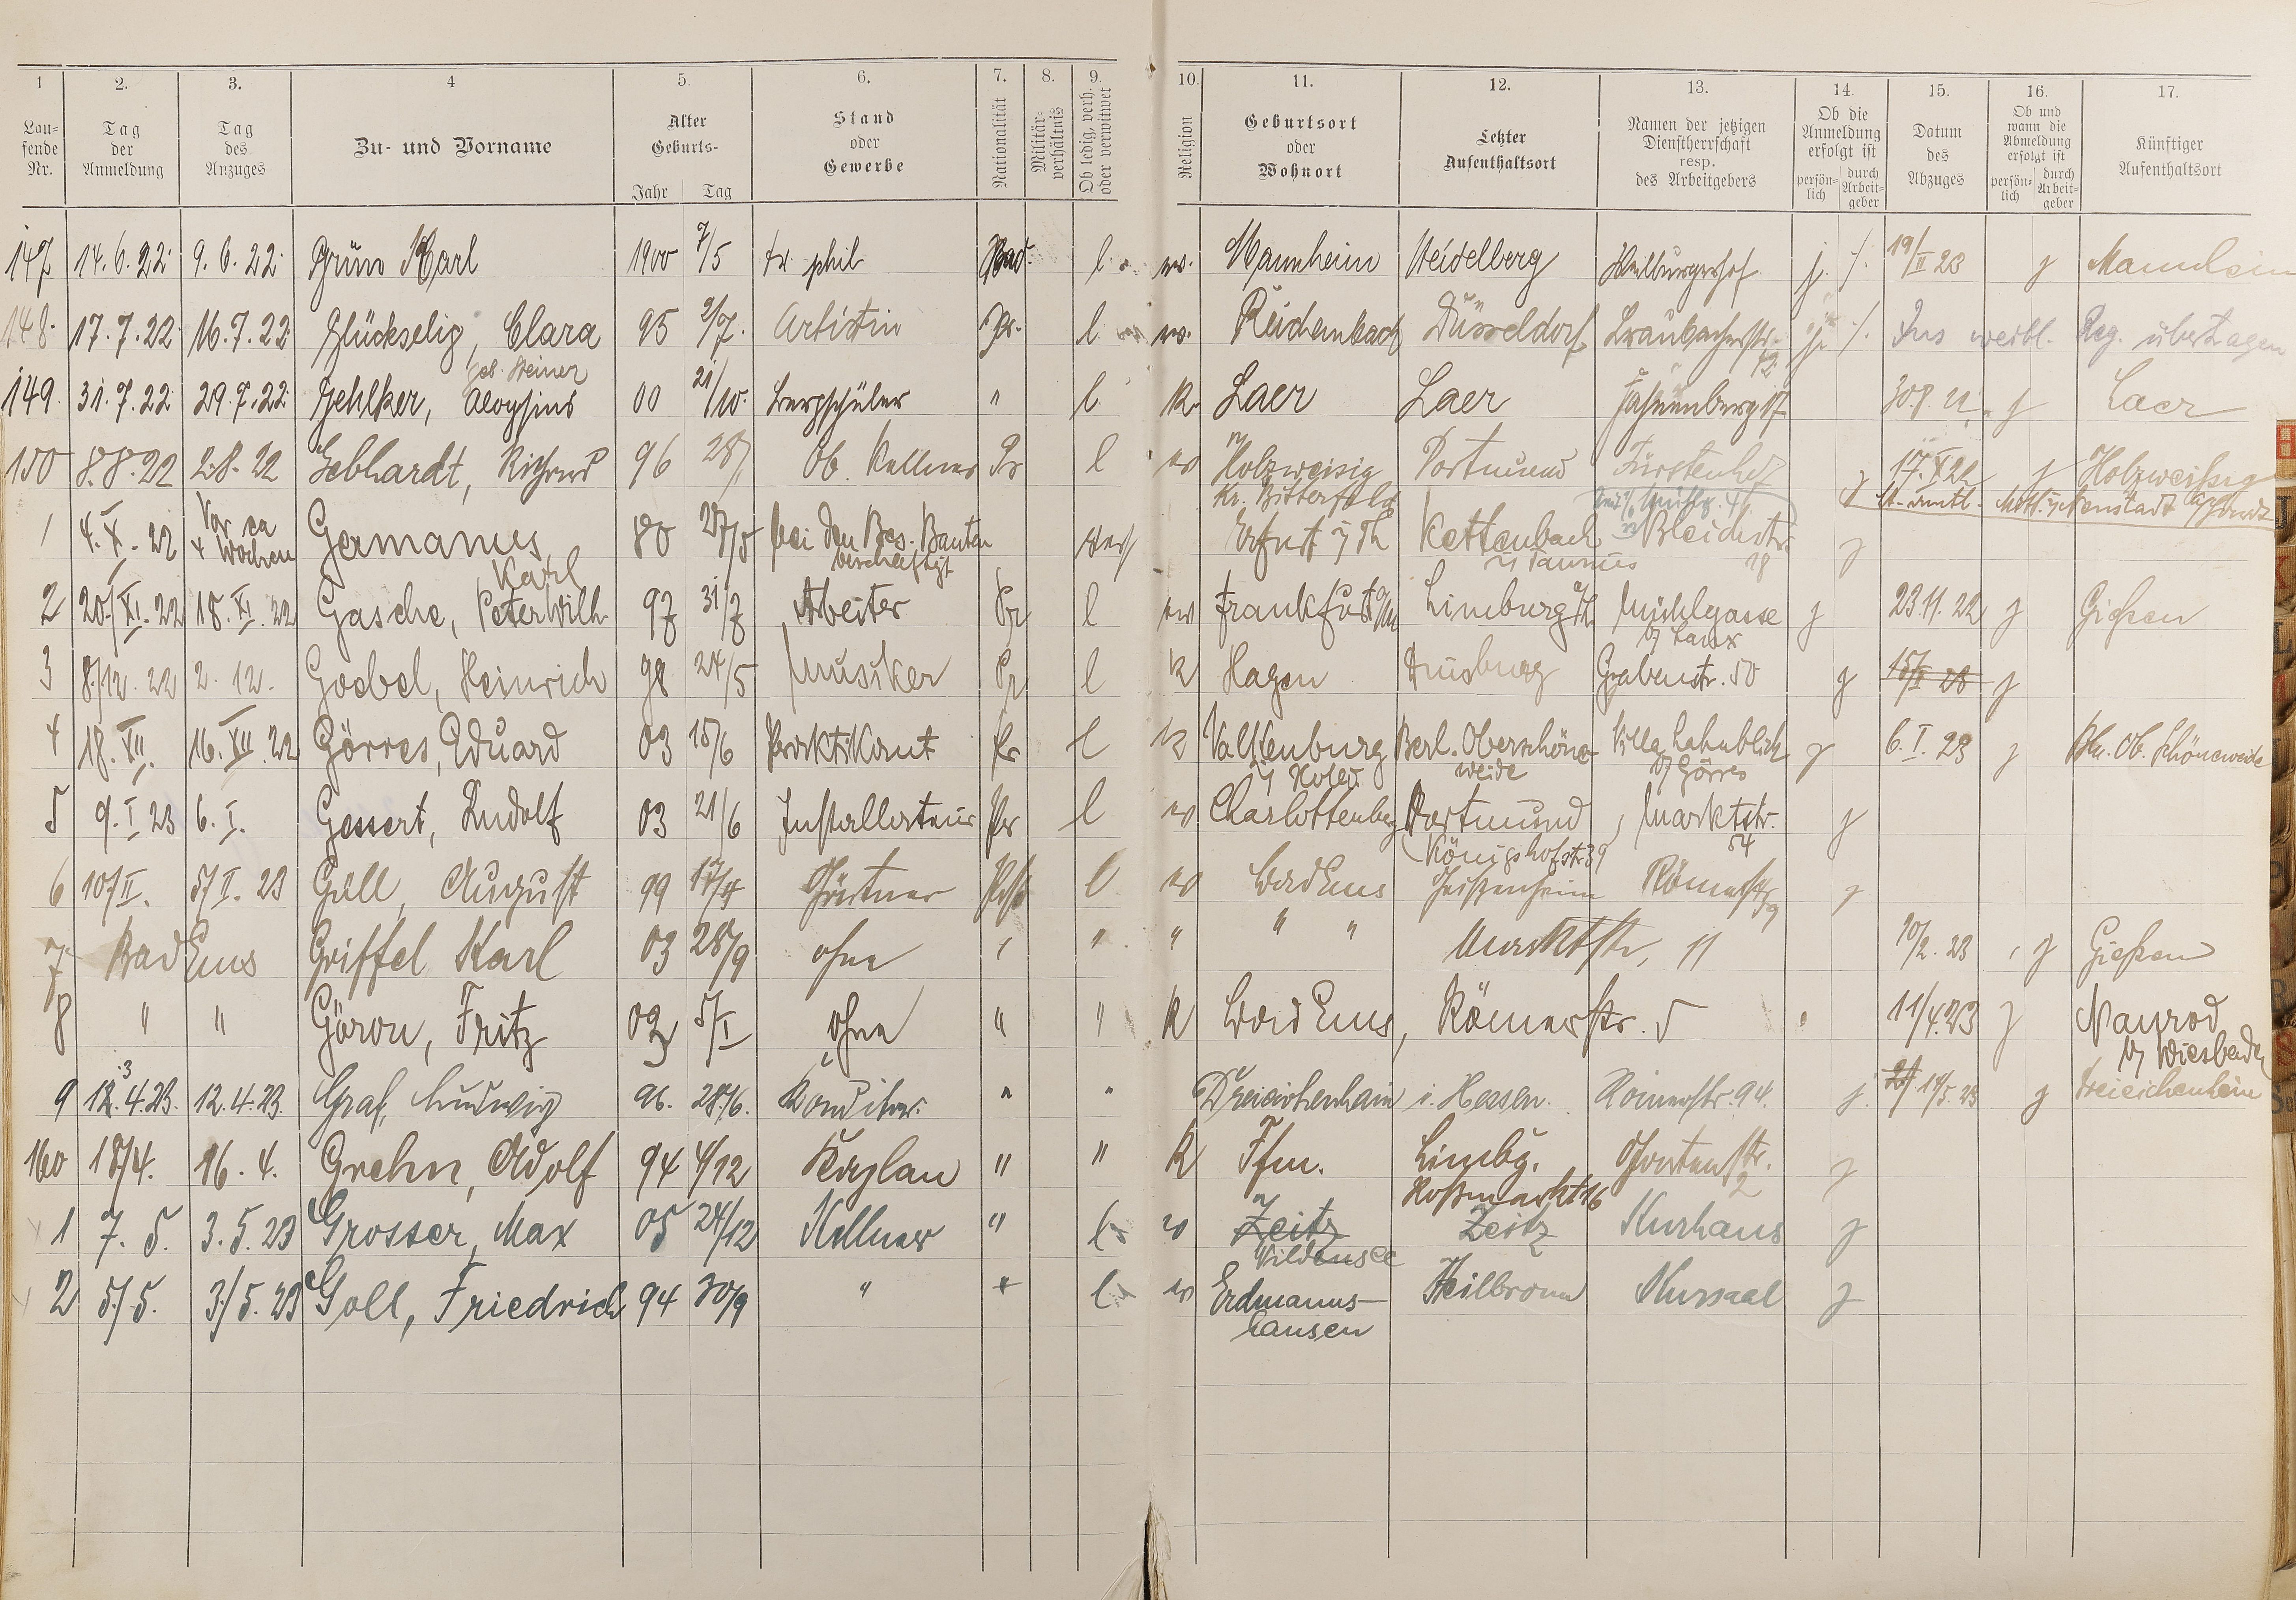 1 2. 3. 4 5. 6. 7. 8. 9. 10. 11. 12. 13. 14. 15. 16. 17.
Lau-
fende
Nr.
Tag
der
Anmeldung
Tag
des
Anzuges
Zu- und Vorname
Alter
Geburts-
Jahr Tag
Stand
oder
Gewerbe
Nationalität
Militär-
verhältnis
Ob ledig, verh.
oder verwitwet
Religion
Geburtsort
oder
Wohnort
Letzter
Aufenthaltsort
Namen der jetzigen
Dienstherrschaft
resp.
des Arbeitgebers
Ob die
Anmeldung
erfolgt ist
persön-
lich
durch
Arbeit-
geber
Datum
des
Abzuges
Ob und
wann die
Abmeldung
erfolgt ist
persön-
lich
durch
Arbeit-
geber
Künftiger
Aufenthaltsort
147 14.6.22 9.6.22 Grün Karl 1900 7/5 dr phil Bad. l. ev. Mannheim Heidelberg Weilburgerhof j. /. 19/II 23 j Mannheim
148. 17.7.22 16.7.22 Glückselig, Clara 95 9/7. Artistin Pr. l ev. Reichenbach Düsseldorf Braubacherstr. /. Ins weibl. Reg. übertragen
geb. Steiner 12
149. 31.7.22 29.7.22 Gehlker, Aloysius 00 21/10. Bergschüler " l. k. Laer Laer Fahnenberg 17 30.8.22. j Laer
150 8.8.22 2.8.22 Gebhardt, Richard 96 28/ Ob. Kellner Pr l ev Holzweisig Dortmund Fürstenhof j 17.X 22 j Holzweißig
Kr. Bitterfeld
1 4.X.22 Vor ca 4 Wochen Germanus, Karl 80 27/5 bei den Bes. Bauten beschäftigt Erfurt i/Th Kettenbach i/Taunus Bleichstr. 18 j
2 20./XI.22 18.XI.22 Gasche, Peter Wilh 97 31/7 Arbeiter Pr l ev Frankfurt a/M Limburg a/L Mühlgasse j 23.11.22 j Gießen
3 8/12.22 2.12. Goebel, Heinrich 98 24/5 Musiker Pr l k Hagen Duisburg Grabenstr. 50 j 15/II 23 j
4 18.XII. 16.XII.22 Görres, Eduard 03 15/6 Praktikant Pr l k Valkenburg Berl. Oberschöne- Villa Lahnblick j 6.I.23 j Bln. Ob. Schöneweide
weide b/ Görres
5 9.I 23 6.I. Gessert, Rudolf 03 21/6 Installateur Pr l ev Charlottenbg Dortmund Marktstr. j
Königshofstr 39 54
6 10/II. 5/II.23 Gill, August 99 17/4 Gärtner l ev Bad Ems Geisenheim Römerstr j
59
7 Bad Ems Griffel Karl 03 28/9 ohne " " " " Marktstr, 11 10/2.23 j Gießen
8 " " Göron, Fritz 03 5/I ohne " " k Bad Ems, Römerstr. 5 11/4.23 j Naurod
b/ Wiesbaden
9 12.4.23. 12.4.23. Graf, Ludwig 96. 28./6. Konditor. " " Dreieichenhain i. Hessen. Römerstr. 94. j 14/5.23 j Dreieichenhain
160 18/4. 16.4. Grehn, Adolf 94 4/12 Kaplan " " k Ffm. Limbg. Roßmarkt 16 Pfortenstr. 2 j
1 7.5. 3.5.23 Grosser, Max 05 24/12 Kellner " l ev Zeitz Zeitz Kurhaus j
Wildensee
2 5/5. 3/5.23 Goll, Friedrich 94 30/9 " l ev Erdmanns- Heilbronn Kursaal j
hausen